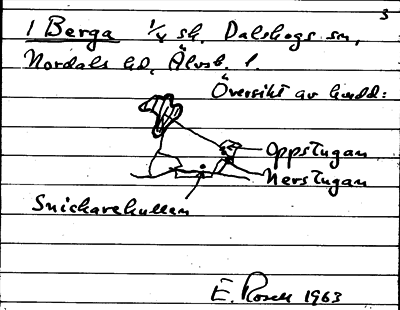 3
1 Berga 1/4 sk. Dalskogs sn,
Nordals hd, Älvsb. l.
Översikt av
Oppstugan
Nerstugan
Snickarekullen
E. 1963